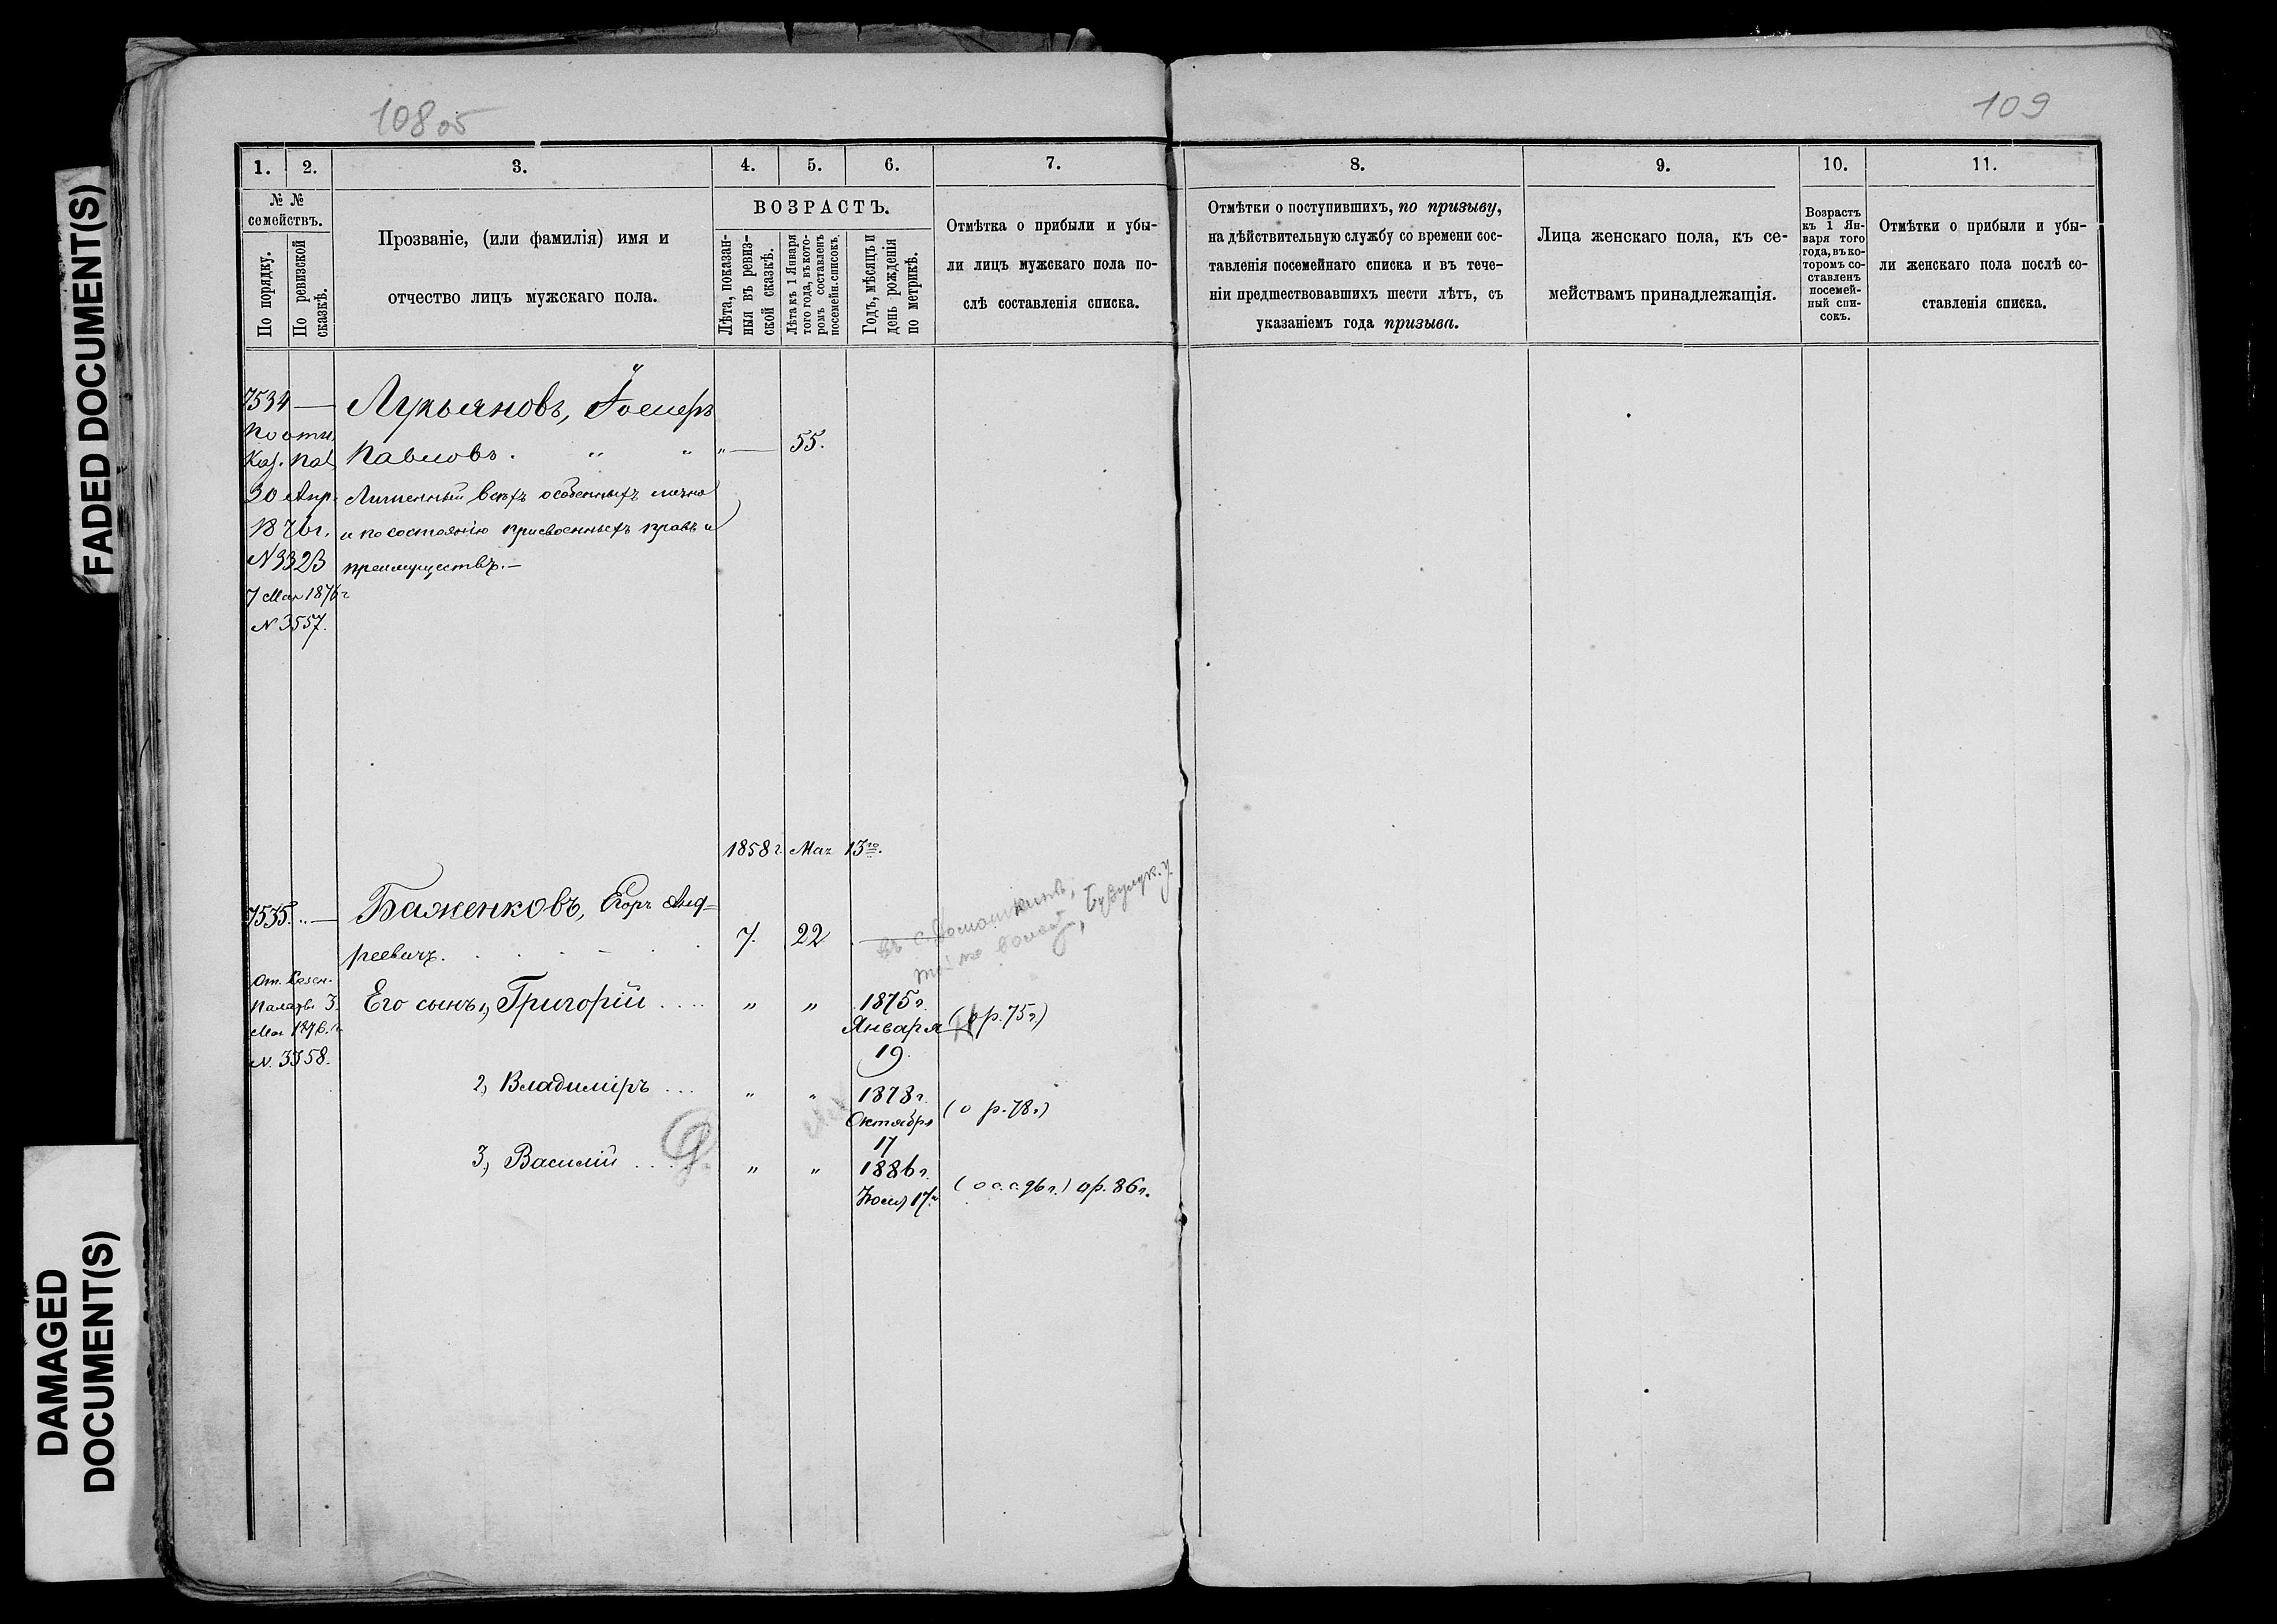 FADED DOCUMENT(S)
DAMAGED
DOCUMENT(S)
108 об
109
1.
2.
3.
4.
5.
6.
7.
8.
9.
10.
11.
№ №
семействъ.
По порядку.
По ревизской
сказкѣ.
Прозваніе, (или фамилія) имя и
отчество лицъ мужскаго пола.
ВОЗРАСТЪ.
Лѣта, показан-
ныя въ ревиз-
ской сказкѣ.
Лѣта къ 1 Января
того года, въ кото-
ромъ составленъ
посемейн. списокъ.
Годъ, мѣсяцъ и
день рожденія
по метрикѣ.
Отмѣтка о прибыли и убы-
ли лицъ мужскаго пола по-
слѣ составленія списка.
Отмѣтки о поступившихъ, по призыву,
на дѣйствительную службу со времени сос-
тавленія посемейнаго списка и въ тече-
ніи предшествовавшихъ шести лѣтъ, съ
указаніемъ года призыва.
Лица женскаго пола, къ се-
мействамъ принадлежащія.
Возрастъ
къ 1 Ян-
варя того
года, въ ко-
торомъ со-
ставленъ
посемей-
ный спи-
сокъ.
Отмѣтки о прибыли и убы-
ли женскаго пола послѣ со-
ставленія списка.
7534 — Лукьяновъ,
Павловъ. " " " — 55.
Каз. Пал.
30 Апр.
1876 г.
N 3323
7 Мая 1876 г
N 3557.
Лишенный всѣхъ особенныхъ лично
и по состоянію присвоенныхъ правъ и
преимуществъ.—
1858 г. Мая 13го.
7535. — Баженковъ, Егоръ Анд-
реевичъ. 7. 22
тойже волости, Бузулук. у.
От. Казен.
Палаты 3
Мая 1876 г.
N. 3358.
Его сынъ 1, Григорій .... " " 1875 г.
Января (о р. 75 г)
19.
2, Владиміръ ... " " 1878 г.
Октября (о р. 78 г)
17
3, Василій .... " " 1886 г.
Юля 17 (о с.с. 96 г.) о р. 86 г.